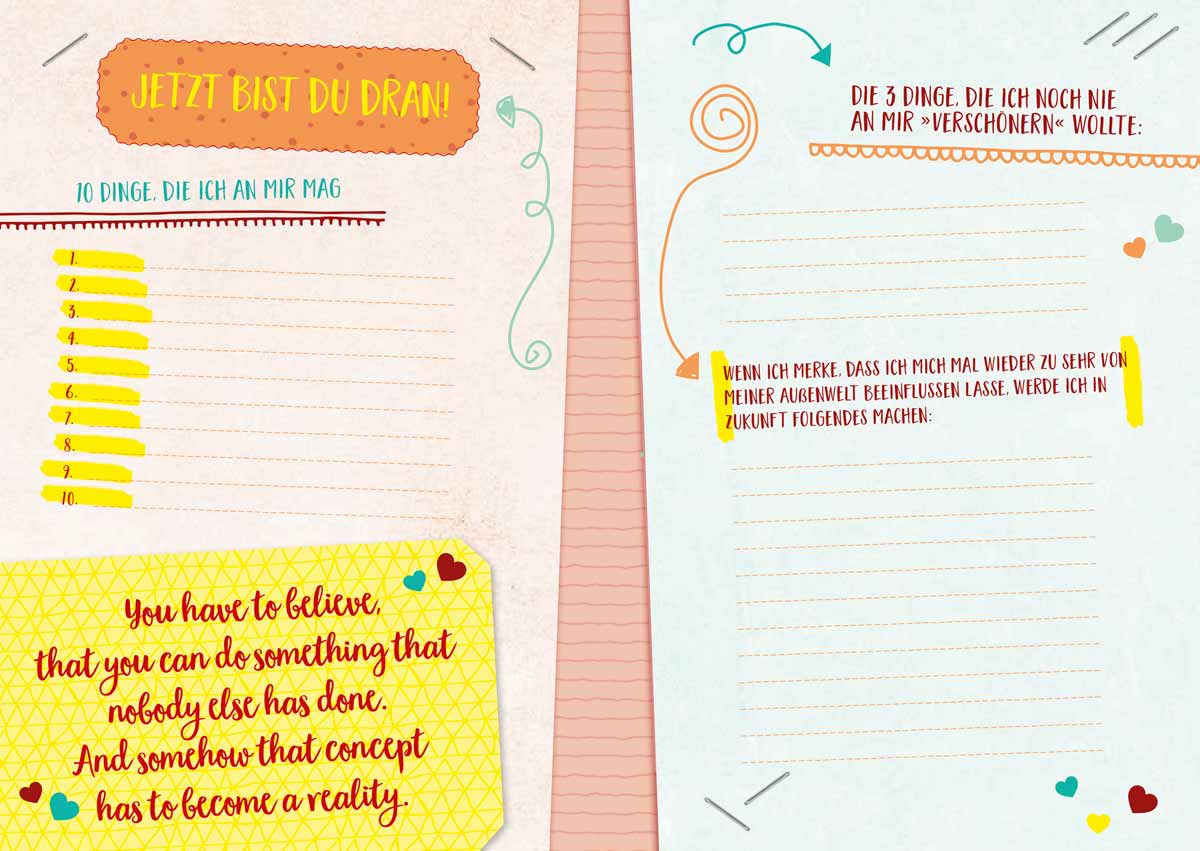 JETZT BIST DU DRAN!
10 DINGE, DIE ICH AN MIR MAG
1.
2.
3.
4.
5.
6.
7.
8.
9.
10.
You have to believe,
that you can do something that
nobody else has done.
And somehow that concept
has to become a reality.
DIE 3 DINGE, DIE ICH NOCH NIE
AN MIR »VERSCHÖNERN« WOLLTE:
WENN ICH MERKE, DASS ICH MICH MAL WIEDER ZU SEHR VON
MEINER AUßENWELT BEEINFLUSSEN LASSE, WERDE ICH IN
ZUKUNFT FOLGENDES MACHEN: